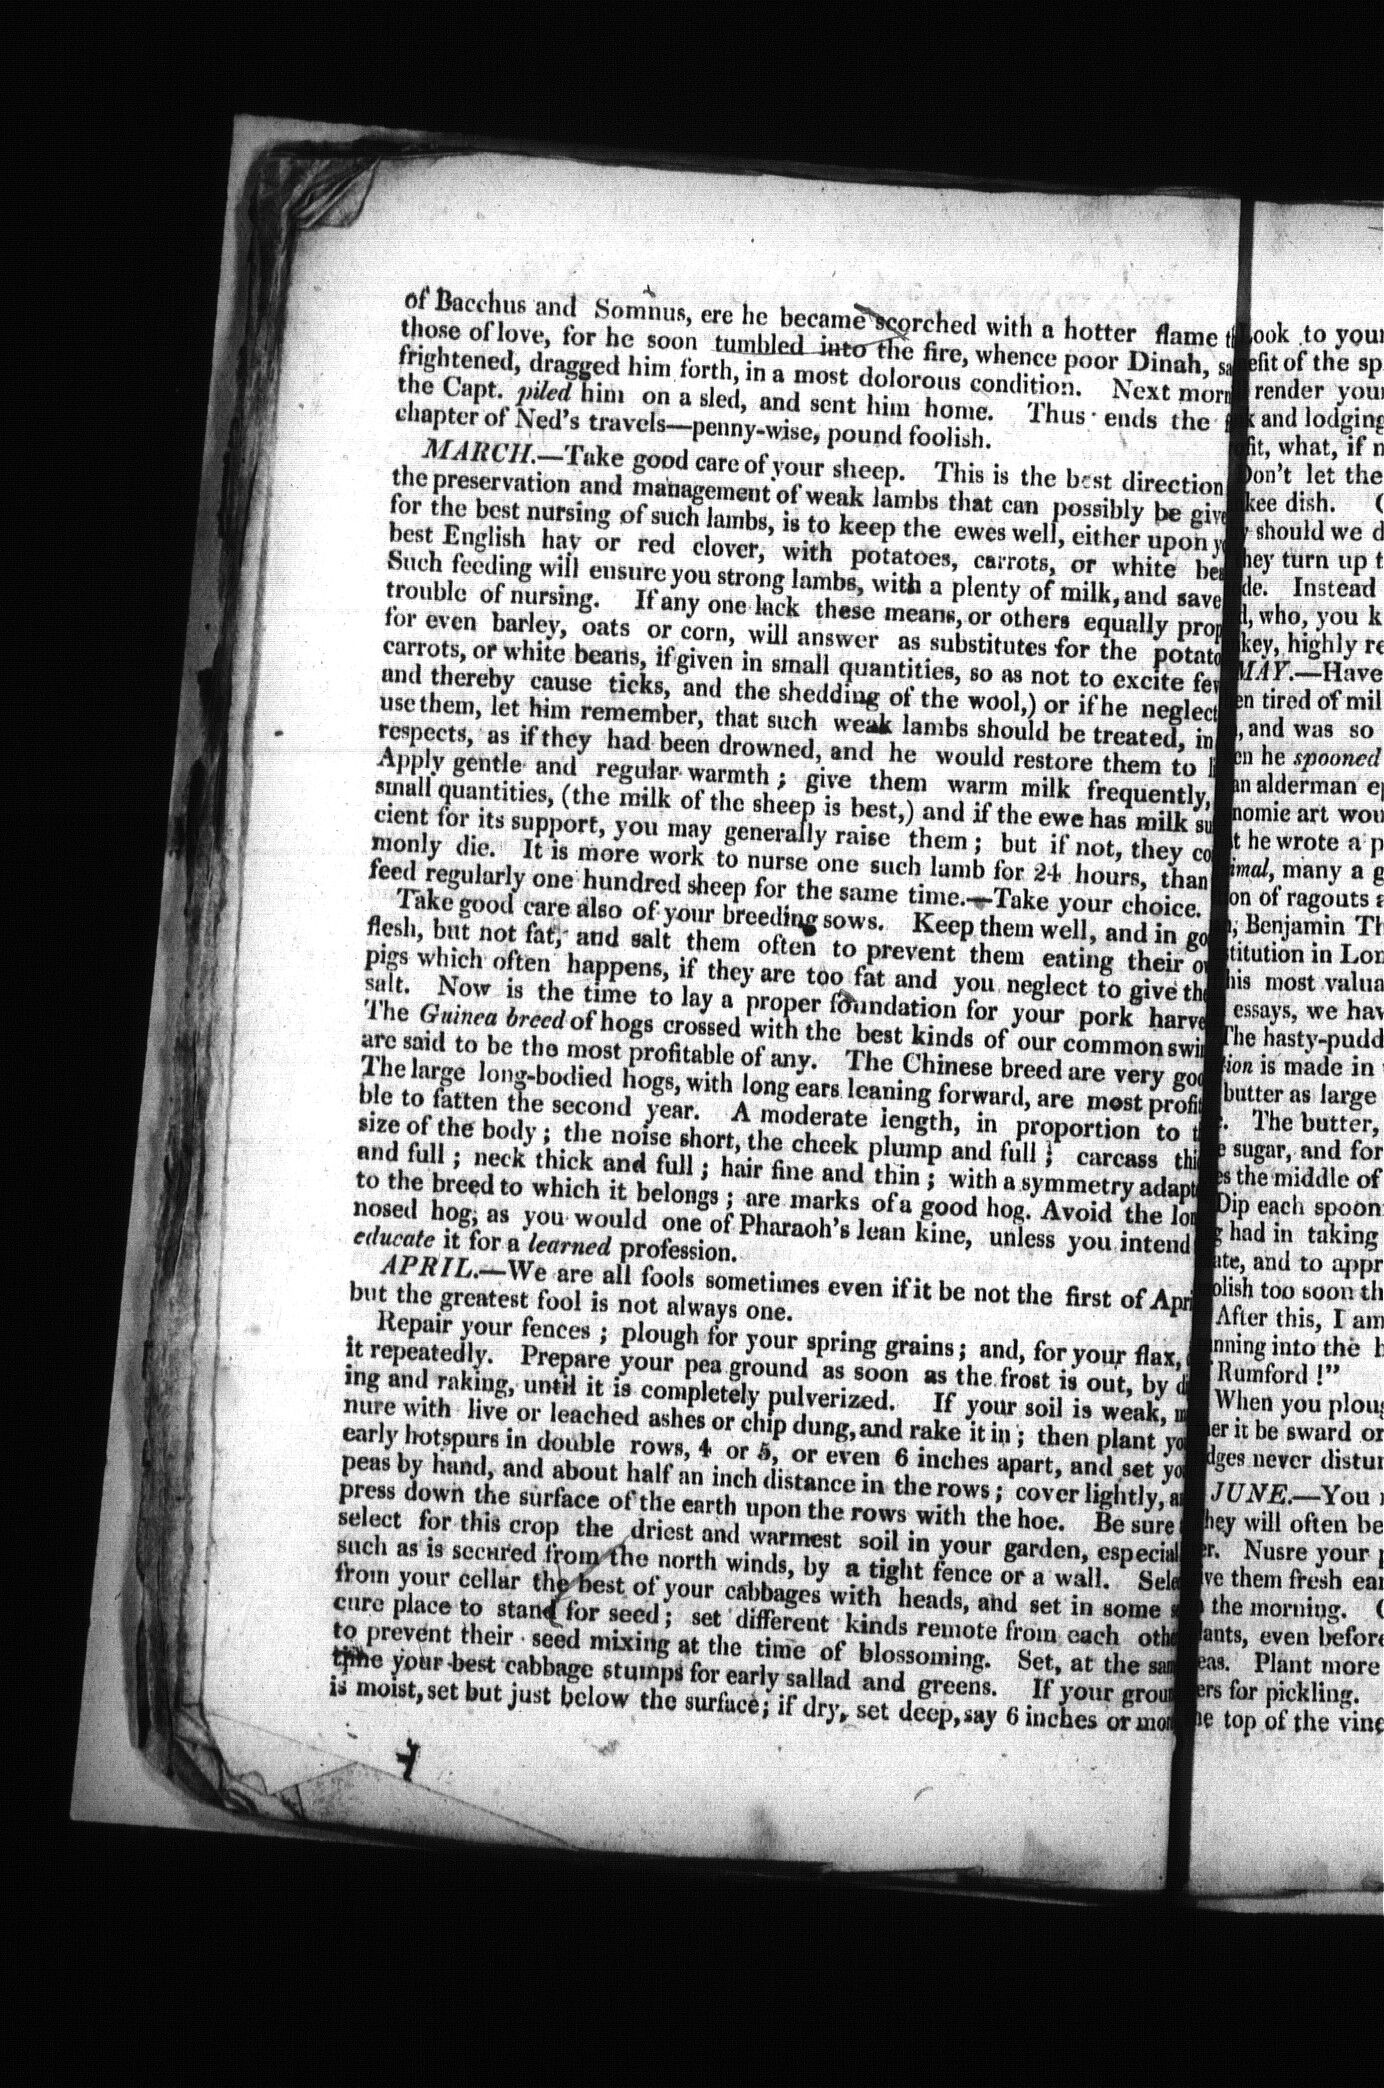 of Bacchus and Somnus, ere he became scorched with a hotter flame
those of love, for he soon tumbled into the fire, whence poor Dinah,
frightened, dragged him forth, in a most dolorous condition. Next morn
the Capt. piled him on a sled, and sent him home. Thus ends the
chapter of Ned's travels—penny-wise, pound foolish.
MARCH.—Take good care of your sheep. This is the best direction
the preservation and management of weak lambs that can possibly be give
for the best nursing of such lambs, is to keep the ewes well, either upon
best English hay or red clover, with potatoes, carrots, or white bea
Such feeding will ensure you strong lambs, with a plenty of milk, and save
trouble of nursing. If any one lack these means, or others equally prop
for even barley, oats or corn, will answer as substitutes for the potato
carrots, or white beans, if given in small quantities, so as not to excite fev
and thereby cause ticks, and the shedding of the wool,) or if he neglect
use them, let him remember, that such weak lambs should be treated, in
respects, as if they had been drowned, and he would restore them to li
Apply gentle and regular warmth; give them warm milk frequently,
small quantities, (the milk of the sheep is best,) and if the ewe has milk su
cient for its support, you may generally raise them; but if not, they co
monly die. It is more work to nurse one such lamb for 24 hours, than
feed regularly one hundred sheep for the same time.—Take your choice.
Take good care also of your breeding sows. Keep them well, and in go
flesh, but not fat, and salt them often to prevent them eating their o
pigs which often happens, if they are too fat and you neglect to give the
salt. Now is the time to lay a proper foundation for your pork harve
The Guinea breed of hogs crossed with the best kinds of our common swi
are said to be the most profitable of any. The Chinese breed are very goo
The large long-bodied hogs, with long ears leaning forward, are most profit
ble to fatten the second year. A moderate length, in proportion to t
size of the body; the noise short, the cheek plump and full; carcass thi
and full; neck thick and full; hair fine and thin; with a symmetry adapt
to the breed to which it belongs; are marks of a good hog. Avoid the lon
nosed hog, as you would one of Pharaoh's lean kine, unless you intend
educate it for a learned profession.
APRIL.—We are all fools sometimes even if it be not the first of Apri
but the greatest fool is not always one.
Repair your fences; plough for your spring grains; and, for your flax,
it repeatedly. Prepare your pea ground as soon as the frost is out, by di
ing and raking, until it is completely pulverized. If your soil is weak, m
nure with live or leached ashes or chip dung, and rake it in; then plant yo
early hotspurs in double rows, 4 or 5, or even 6 inches apart, and set yo
peas by hand, and about half an inch distance in the rows; cover lightly, a
press down the surface of the earth upon the rows with the hoe. Be sure
select for this crop the driest and warmest soil in your garden, especial
such as is secured from the north winds, by a tight fence or a wall. Sele
from your cellar the best of your cabbages with heads, and set in some s
cure place to stand for seed; set different kinds remote from each othe
to prevent their seed mixing at the time of blossoming. Set, at the sam
time your best cabbage stumps for early sallad and greens. If your groun
is moist, set but just below the surface; if dry, set deep, say 6 inches or mor
Look to your
efit of the sp
render your
k and lodging
fit, what, if n
Don't let the
kee dish.
should we d
hey turn up t
de. Instead
l, who, you k
key, highly re
MAY.—Have
en tired of mil
, and was so
en he spooned
an alderman ep
nomic art wou
t he wrote a p
imal, many a g
on of ragouts a
, Benjamin Th
stitution in Lon
his most valua
essays, we hav
The hasty-pudd
tion is made in
butter as large
. The butter,
e sugar, and for
es the middle of
Dip each spoon
g had in taking
ate, and to appr
olish too soon th
After this, I am
nning into the h
Rumford!"
When you ploug
er it be sward or
dges never distur
JUNE.—You
hey will often be
er. Nusre your p
ive them fresh ear
the morning.
lants, even before
eas. Plant more
ers for pickling.
he top of the vine